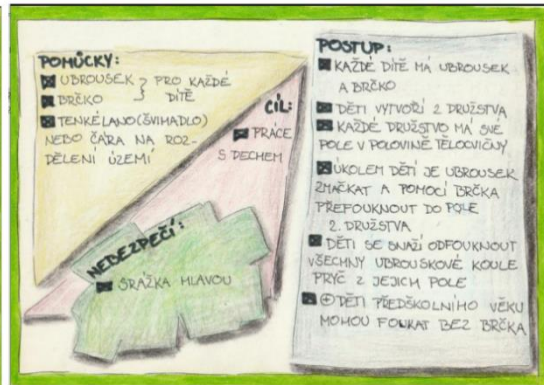 POMŮCKY:
UBROUSEK } PRO KAŽDÉ
BRČKO } DÍTĚ
TENKÉ LANO (ŠVIHADLO)
NEBO ČÁRA NA ROZ-
DĚLENÍ ÚZEMÍ
CÍL:
PRÁCE
S DECHEM
NEBEZPEČÍ:
SRÁŽKA HLAVOU
POSTUP:
KAŽDÉ DÍTĚ MÁ UBROUSEK
A BRČKO
DĚTI VYTVOŘÍ 2 DRUŽSTVA
KAŽDÉ DRUŽSTVO MÁ SVÉ
POLE V POLOVINĚ TĚLOCVIČNY
ÚKOLEM DĚTÍ JE UBROUSEK
ZMAČKAT A POMOCÍ BRČKA
PŘEFOUKNOUT DO POLE
2. DRUŽSTVA
DĚTI SE SNAŽÍ ODFOUKNOUT
VŠECHNY UBROUSKOVÉ KOULE
PRYČ Z JEJICH POLE
⊕ DĚTI PŘEDŠKOLNÍHO VĚKU
MOHOU FOUKAT BEZ BRČKA